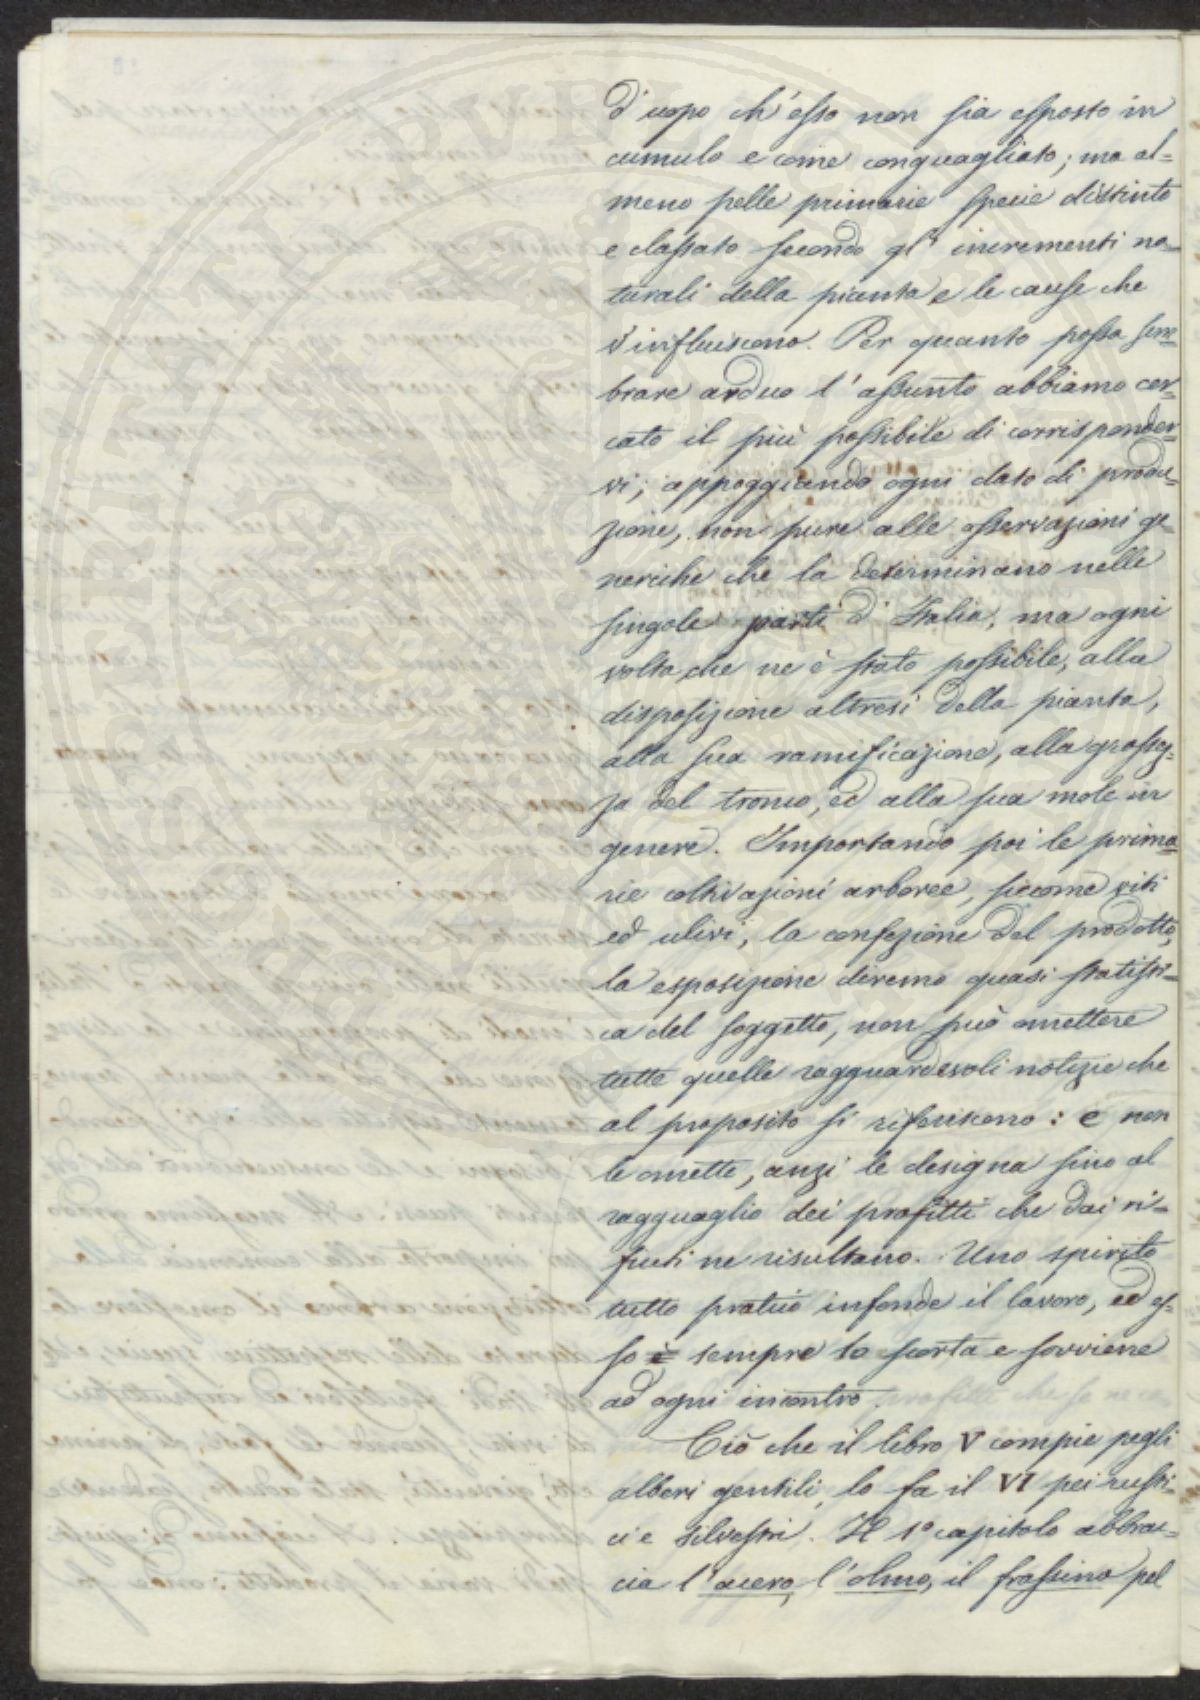 d'uopo ch'esso non sia esposto in
cumulo e come conguagliato; ma al=
meno pelle primarie specie distinto
e classato secondo gl'incrementi na=
turali della pianta e le cause che
v'influiscono. Per quanto possa sem=
brare arduo l'assunto abbiamo cer=
cato il più possibile di corrisponder=
vi; appoggiando ogni dato di produ=
zione, non pure alle osservazioni ge=
neriche che la determinano nelle
singole parti d'Italia, ma ogni
volta che ne è stato possibile, alla
disposizione altresì della pianta,
alla sua ramificazione, alla grossez=
za del tronco, ed alla sua mole in
genere. Importando poi le prima=
rie coltivazioni arboree, siccome viti
ed ulivi, la confezione del prodotto,
la esposizione diremo quasi statisti=
ca del soggetto, non può omettere
tutte quelle ragguardevoli notizie che
al proposito si riferiscono: e non
le omette, anzi le designa sino al
ragguaglio dei profitti che dai ri=
fiuti ne risultano. Uno spirito
tutto pratico infonde il lavoro, ed es=
so è sempre lo scorta e sovviene
ad ogni incontro.
Ciò che il libro V compie pegli
alberi gentili, lo fa il VI pei rusti=
ci e silvestri. Il 1° capitolo abbrac=
cia l'acero, l'olmo, il frassino pel